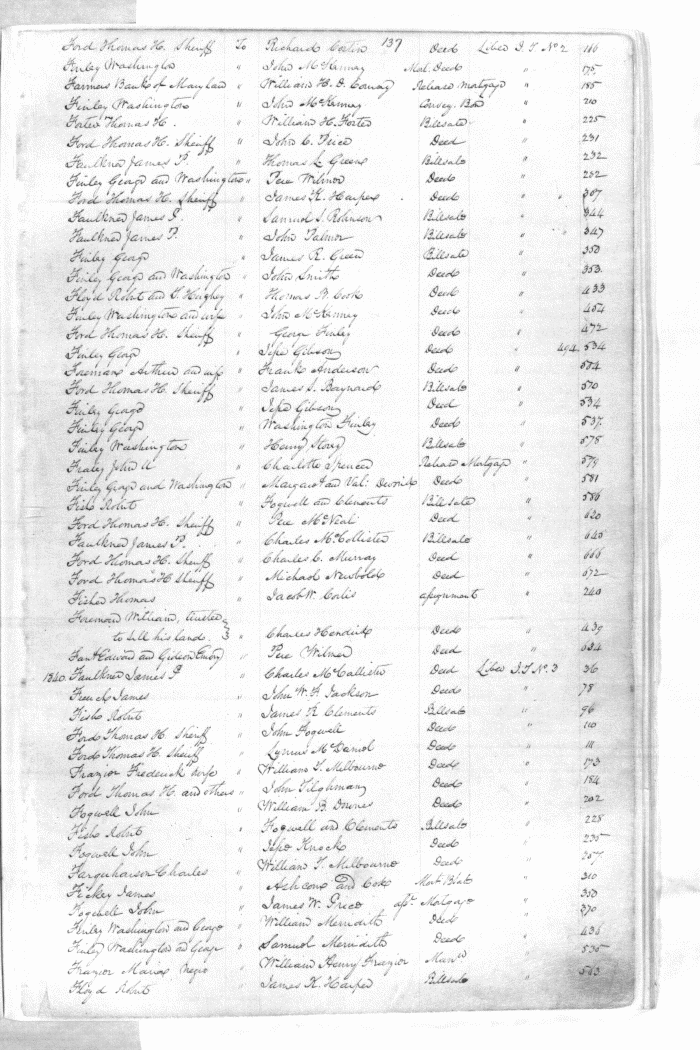 137
Ford Thomas H. Sheriff To Richard Costin Deed Liber J. T. No 2 166
Finley Washington " John McKenney Mat. Deed " 175
Farmers Bank of Maryland " William H. D. Conway Release Mortgage " 185
Finley Washington " John McKenney Convey. Bond " 210
Foster Thomas H. " William H. Foster Billsale " 225
Ford Thomas H. Sheriff " John C. Price Deed " 231
Faulkner James P. " Thomas L Greene Billsale " 232
Finley George and Washington " Pere Wilmer Deed " 252
Ford Thomas H. Sheriff " James K. Harper Deed " 307
Faulkner James P. " Samuel S. Robinson Billsale " 344
Faulkner James P. " John Palmer Billsale " 347
Finley George " James R. Green Billsale " 350
Finley George and Washington " John Smith Deed " 353
Floyd Robert and T. Hughey " Thomas B. Cook Deed " 433
Finley Washington and wife " John McKenney Deed " 454
Ford Thomas H. Sheriff " George Finley Deed " 472
Finley George " Jesse Gibson Deed " 494. 534
Foreman Arthur and wife " Frank Anderson Deed " 554
Ford Thomas H. Sheriff " James S. Baynard Billsale " 570
Finley George " Jesse Gibson Deed " 534
Finley George " Washington Finley Deed " 537
Finley Washington " Henry Storey Billsale " 578
Fraley John W " Charlotte Spencer Release Mortgage " 579
Finley George and Washington " Margaret and Val: Deed " 581
Fisk Robert " Fogwell and Clements Billsale " 586
Ford Thomas H. Sheriff " Pere McNeal Deed " 620
Faulkner James P. " Charles McCollister Billsale " 645
Ford Thomas H. Sheriff " Charles C. Murray Deed " 666
Ford Thomas H Sheriff " Michael Newbold Deed " 672
Fisher Thomas " Jacob W. Corlis assignment " 240
Foreman William, trustee
to sell his lands. " Charles Hendrix Deed " 439
Fant Edward and Gideon Emory " Pere Wilmer Deed " 634
1840 Faulkner James P " Charles McCallister Deed Liber J. T. No. 3 36
French James " John W. F. Jackson Deed " 78
Fisk Robert " James K Clements Billsale " 96
Ford Thomas H. Sheriff " John Fogwell Deed " 110
Ford Thomas H. Sheriff " Lynus McDaniel Deed " 111
Frazier Frederick & wife " William T. Melbourne Deed " 173
Ford Thomas H. and others " John Tilghman Deed " 184
Fogwell John " William B. Downes Deed " 202
Fisk Robert " Fogwell and Clements Billsale " 228
Fogwell John " Jesse Knock Deed " 235
Farquharson Charles " William T. Melbourne Deed " 257
Fickley James " Ashcom and Cook " 310
Fogwell John " James W. Price Mortgage " 350
Finley Washington and George " William Meridith Deed " 370
Finley Washington and George " Samuel Meridith Deed " 436
Frazier Maria Negro " William Henry Frazier Manu " 535
Floyd Robert " James K. Harper Billsale " 563